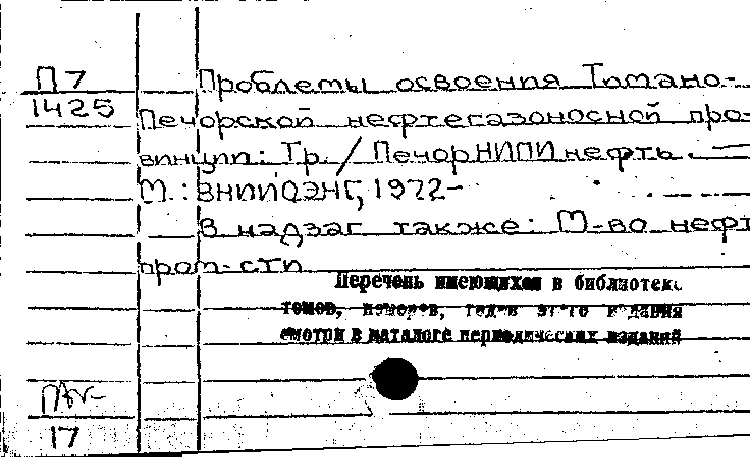 П7
1425
Проблемы освоения Тимано-
Печорской нефтегазоносной про-
винции: Тр. / ПечорНИПИнефть. —
М.: ВНИИОЭНГ, 1972-
В надзаг. также: М-во нефт.
пром-сти
Перечень имеющихся в библиотеке
томов, номеров, годов этого издания
смотри в каталоге периодических изданий
17